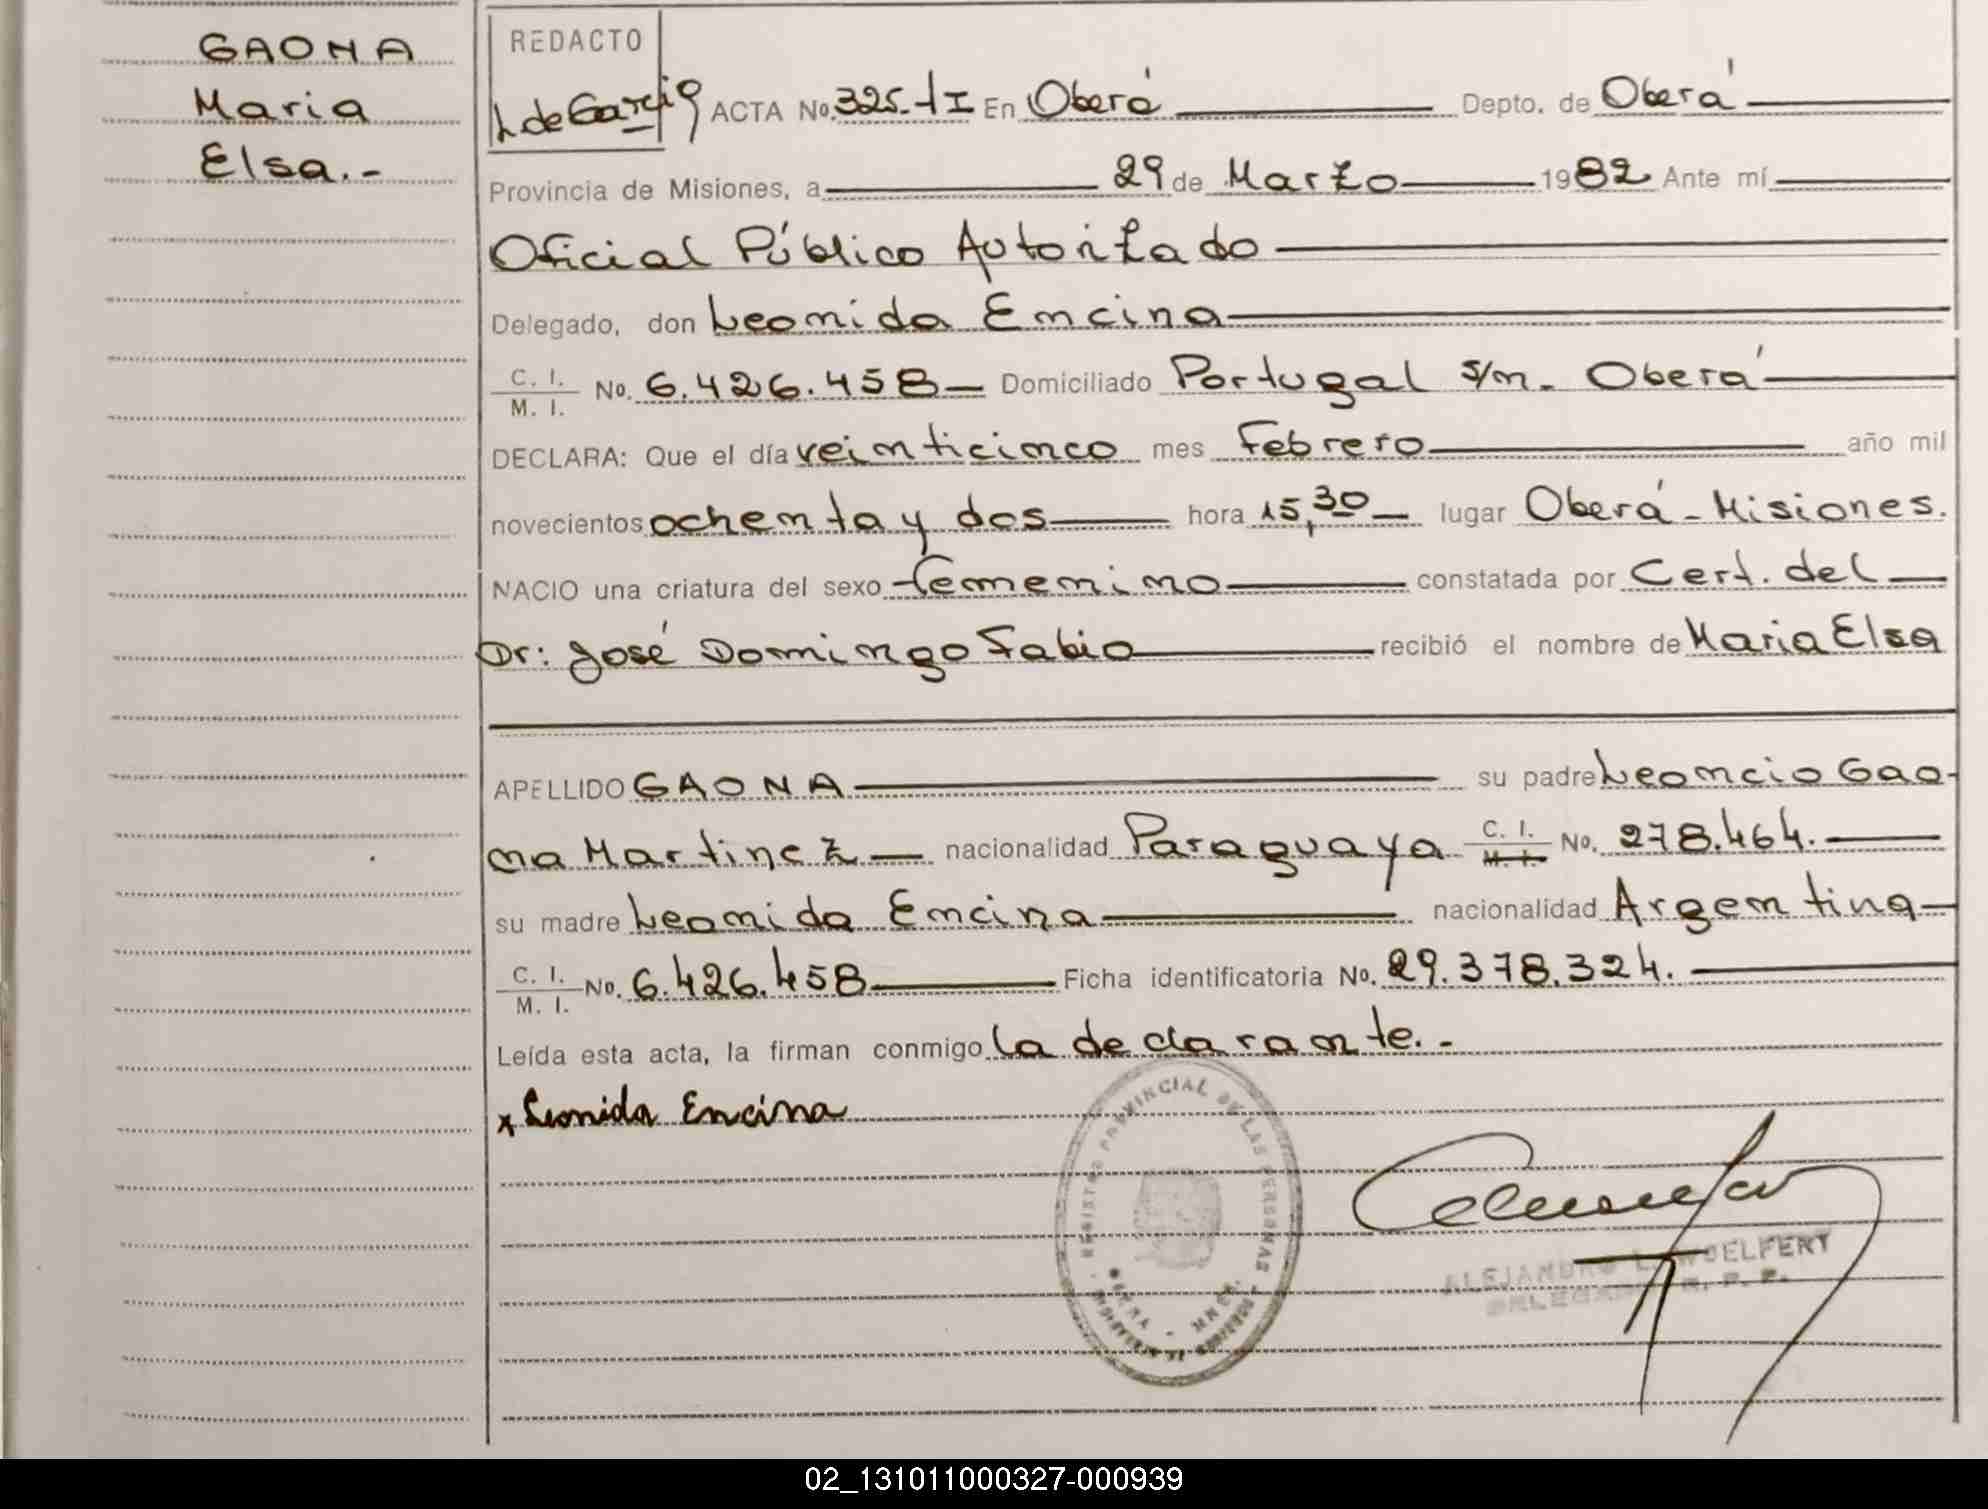 GAONA
Maria
Elsa.-
REDACTO
L de Garcia ACTA No. 325-tI En Oberá Depto. de Oberá
Provincia de Misiones, a 29 de Marzo 1982 Ante mí
Oficial Público Autorizado
Delegado, don Leonida Encina
C. I. / M. I. No. 6.426.458 Domiciliado Portugal s/n. Oberá
DECLARA: Que el día veinticinco mes Febrero año mil
novecientos ochenta y dos hora 15,30 lugar Oberá - Misiones.
NACIO una criatura del sexo femenino constatada por Cert. del
Dr: José Domingo Fabio recibió el nombre de Maria Elsa
APELLIDO GAONA su padre Leoncio Gao-
na Martinez nacionalidad Paraguaya C. I. / M. I. No. 278.464.
su madre Leonida Encina nacionalidad Argentina
C. I. / M. I. No. 6.426.458 Ficha identificatoria No. 29.378.324.
Leída esta acta, la firman conmigo la declarante.-
x Leonida Encina
REGISTRO PROVINCIAL DE LAS PERSONAS
ALEJANDRO L. WOELFERT
DELEGADO R. P. P.
02_131011000327-000939